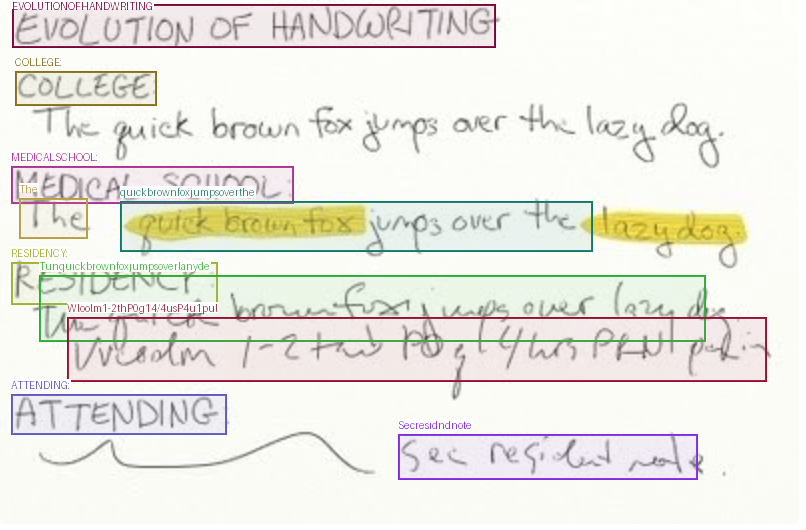 EVOLUTIONOFHANDWRITING
EVOLUTION OF HANDWRITING
COLLEGE:
COLLEGE:
The quick brown fox jumps over the lazy dog.
MEDICALSCHOOL:
MEDICAL SCHOOL:
The quickbrownfoxjumpsoverthe
The quick brown fox jumps over the lazy dog.
RESIDENCY:
Tunquickbrownfoxjumpsoverlanyde
RESIDENCY:
Wloolm1-2thP0g14/4usP4u1pul
The quick brown fox jumps over lazy dog
1-2 tab PO q 4hrs PRN pain
ATTENDING:
ATTENDING:
Secresidndnote
See resident note.